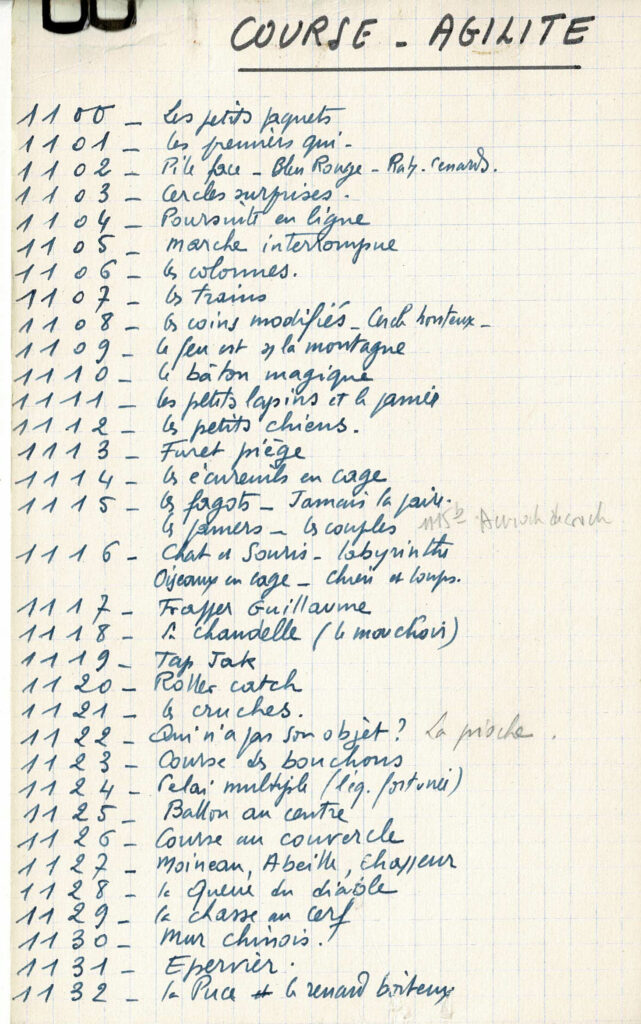 COURSE - AGILITE
1100 - Les petits paquets
1101 - Les premiers qui -
1102 - Pile face - Bleu Rouge - Rats. renards.
1103 - Cercles surprises.
1104 - Poursuite en ligne
1105 - Marche interrompue
1106 - les colonnes.
1107 - les trains
1108 - les coins modifiés - honteux -
1109 - le feu est s/ la montagne
1110 - le bâton magique
1111 - les petits lapins et le
1112 - les petits chiens.
1113 - Furet piège
1114 - les écureuils en cage
1115 - les fagots - Jamais la paire.
les - les couples 1115b
1116 - Chat et Souris - labyrinthe
Oiseaux en cage - chien et loups.
1117 - Frapper Guillaume
1118 - la chandelle (le mouchoir)
1119 - Tap Jak
1120 - Roller catch
1121 - les cruches.
1122 - Qui n'a pas son objet ? La pioche.
1123 - Course des bouchons
1124 - relai multiple (lég. fortunée)
1125 - Ballon au centre
1126 - Course au couvercle
1127 - Moineau, Abeille, Chasseur
1128 - la Queue du diable
1129 - la chasse au cerf
1130 - Mur chinois.
1131 - Epervier.
1132 - la Puce et le renard boiteux